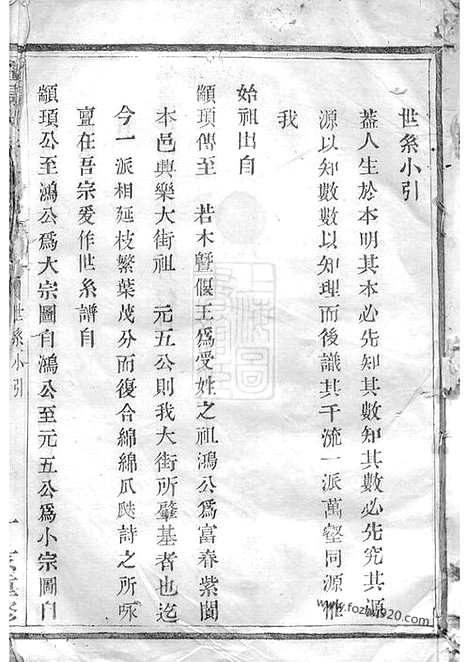 世系小引
蓋人生於本明其本必先知其數知其數必先究其源
源以知數數以知理而後識其千流一派萬壑同源惟
我
始祖出自
顓頊傳至 若木暨偃王爲受姓之祖鴻公爲富春紫閬
本邑興樂大街祖 元五公則我大街所肇基者也迄
今一派相延枝繁葉茂分而復合綿綿瓜瓞詩之所咏
亶在吾宗爰作世系譜自
顓頊公至鴻公爲大宗圖自鴻公至元五公爲小宗圖自
世系小引
上海圖
www.fozhu920.com